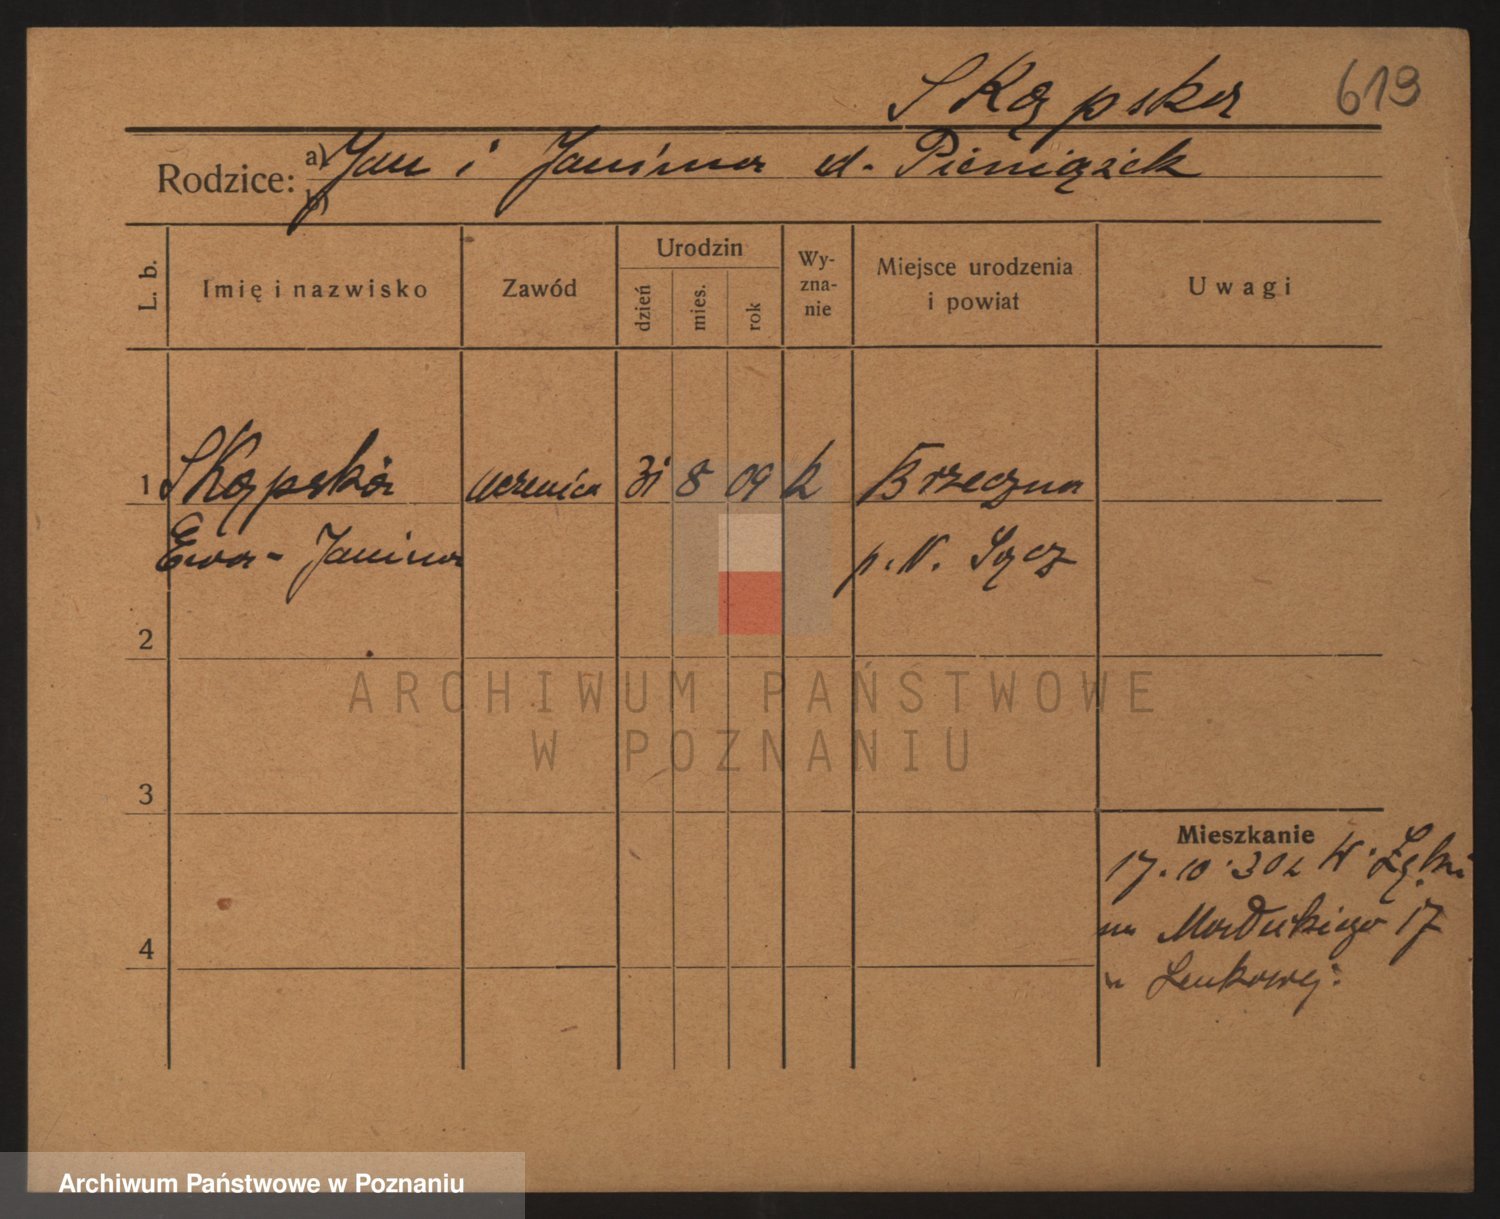 Skąpska 619
Rodzice: a) Jan i Janina d. Pieniążek
b)
L. b. Imię i nazwisko Zawód Urodzin dzień mies. rok Wy-zna-nie Miejsce urodzenia i powiat Uwagi
1 Skąpska uczenica 31 8 09 k Brzeczna
Ewa-Janina p. N. Sącz
2
ARCHIWUM PAŃSTWOWE
W POZNANIU
3
Mieszkanie
17.10.30 z W.
na 17
4
u Lenkowej.
Archiwum Państwowe w Poznaniu